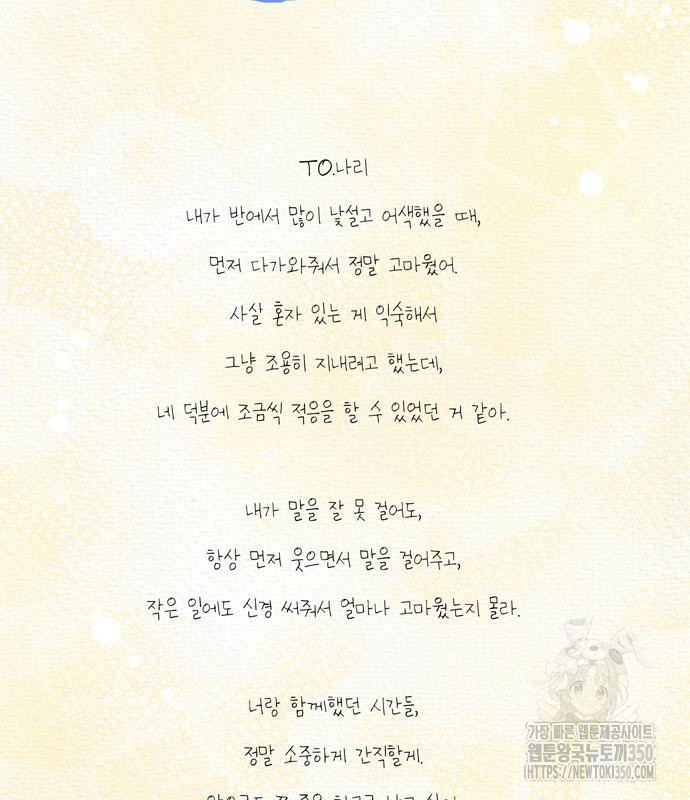 TO.나리
내가 반에서 많이 낯설고 어색했을 때,
먼저 다가와줘서 정말 고마웠어.
사살 혼자 있는 게 익숙해서
그냥 조용히 지내려고 했는데,
네 덕분에 조금씩 적응을 할 수 있었던 거 같아.
내가 말을 잘 못 걸어도,
항상 먼저 웃으면서 말을 걸어주고,
작은 일에도 신경 써줘서 얼마나 고마웠는지 몰라.
너랑 함께했던 시간들,
정말 소중하게 간직할게.
가장 빠른 웹툰제공사이트
웹툰왕국뉴토끼350
HTTPS://NEWTOKI350.COM